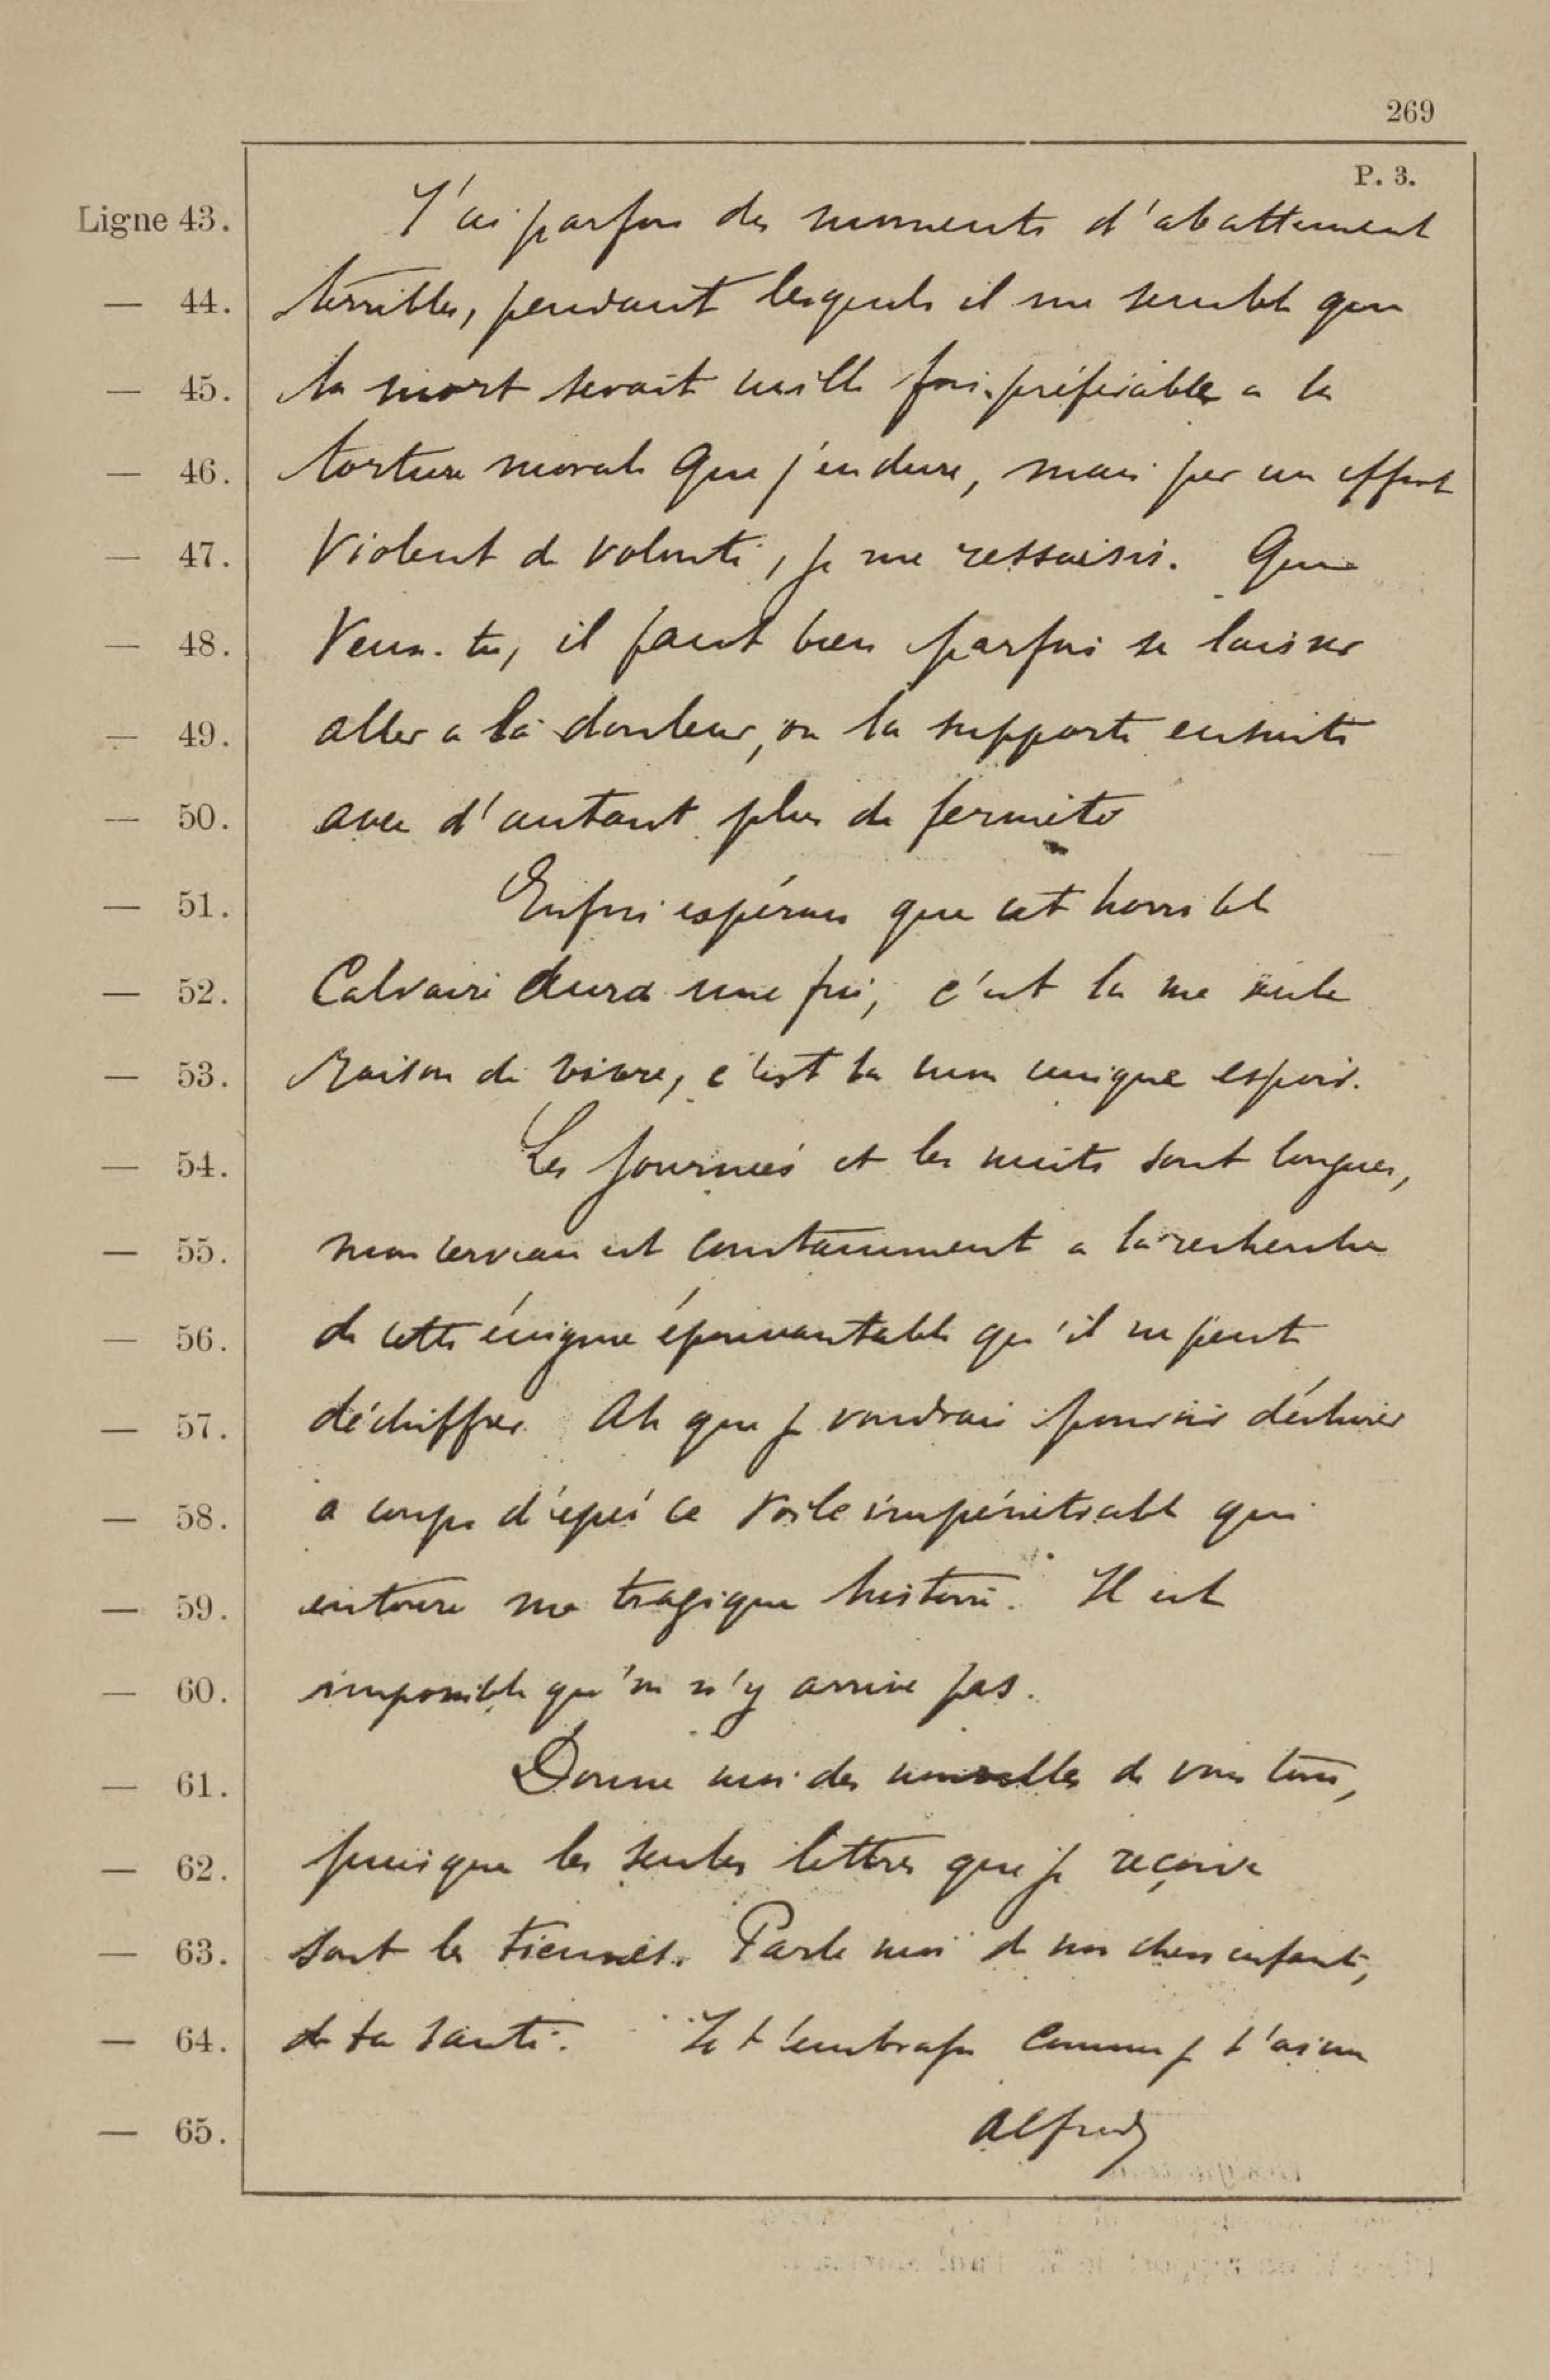 269
P. 3.
Ligne 43. J'ai parfois des moments d'abattement
— 44. terribles, pendant lesquels il me semble que
— 45. la mort serait mille fois préférable a la
— 46. torture morale que j'endure, mais par un effort
— 47. violent de volonté, je me ressaisis. Que
— 48. Veux-tu, il faut bien parfois se laisser
— 49. aller a la douleur, on la supporte ensuite
— 50. avec d'autant plus de fermeté
— 51. Enfin espérons que cet horrible
— 52. Calvaire aura une fin, c'est la ma seule
— 53. raison de vivre, c'est la mon unique espoir.
— 54. Les journées et les nuits sont longues,
— 55. mon cerveau est constamment a la recherche
— 56. de cette énigme épouvantable qu'il ne peut
— 57. déchiffrer. Ah que je voudrais pouvoir déchirer
— 58. a coups d'épée ce voile impénétrable qui
— 59. entoure ma tragique histoire. Il est
— 60. impossible qu'on n'y arrive pas.
— 61. Donne moi des nouvelles de vous tous,
— 62. puisque les seules lettres que je reçoive
— 63. sont les tiennes. Parle moi de nos chers enfants,
— 64. de ta santé. Je t'embrasse comme je t'aime
— 65. Alfred